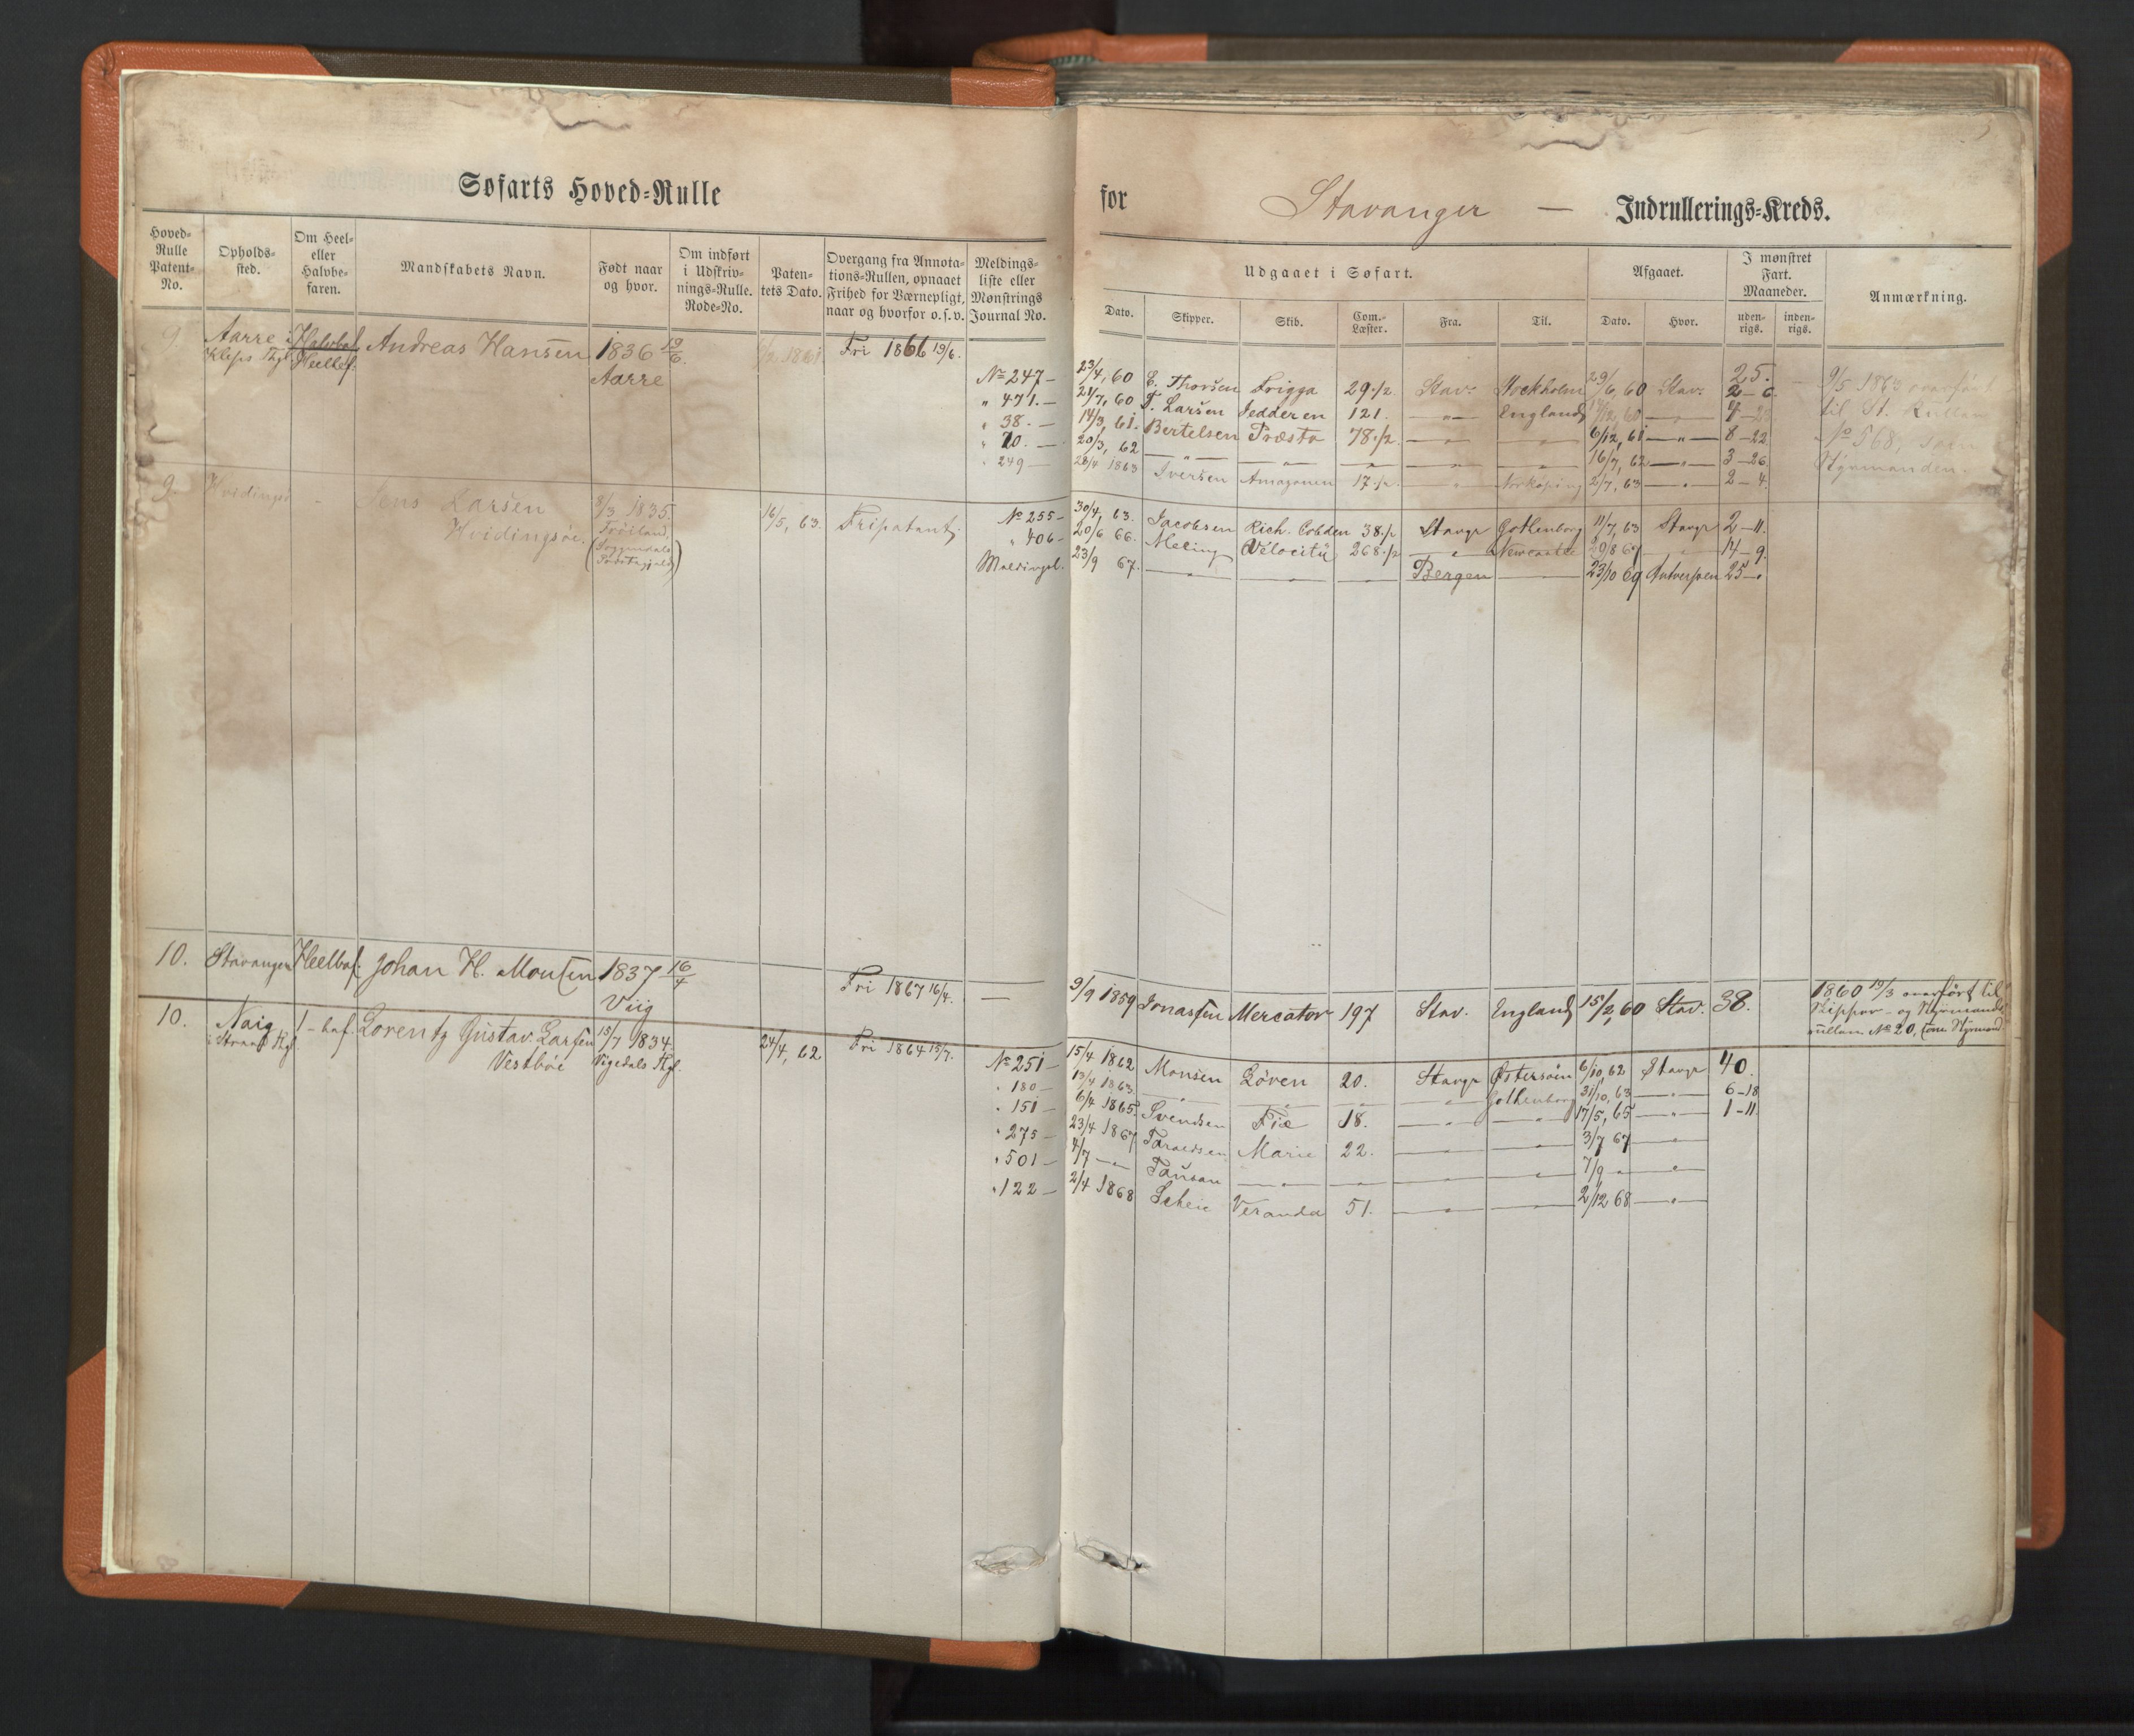 Søfarts Hoved-Rulle
for Stavanger — Indrullerings-Kreds.
Hoved-Rulle Patent-No.
Opholds-sted.
Om Heel- eller Halvbe-faren.
Mandskabets Navn.
Født naar og hvor.
Om indført i Udskriv-nings-Rulle. Rode-No.
Paten-tets Dato.
Overgang fra Annota-tions-Rullen, opnaaet Frihed for Værnepligt, naar og hvorfor o.s.v.
Meldings-liste eller Mønstrings Journal No.
Udgaaet i Søfart.
Dato. Skipper. Skib. Com.-Læster. Fra. Til.
Afgaaet.
Dato. Hvor.
I mønstret Fart. Maaneder.
uden-rigs. inden-rigs.
Anmærkning.
9. Aarre i Halvbef. Andreas Hansen 1836 19/6 1861 Fri 1866 19/6.
Kleps Thgl. Heelbef. Aarre
No 247 — 23/4, 60 E. Thorsen Frigga 29 1/2 Stav. Stockholm 29/6, 60 Stav. 25.
2-6
" 471. — 21/7, 60 T. Larsen Jedderen 121. — " — England 60 — " — 4-23
" 38. — 14/3, 61. Bertelsen Præsto 78 1/2 — " — — " — 6/12, 61 — " — 8-22
" 70. — 20/3, 62 — " — — " — — " — — " — — " — 16/7, 62 — " — 3-26
" 249 — 28/4 1863 Iversen Amazonen 17 1/2 — " — Norkøping 2/7, 63 — " — 2-4
9/5 1863 overført
til St. Rullen
No 568, som
Styrmanden.
9. Hvidingsø - Jens Larsen 8/3 1835. 16/5, 63. Fripatent.
Hvidingsøe.
No 255 — 30/4, 63. Jacobsen Rich. Cobden 38 1/2 Stavgr Gothenborg 11/7, 63 Stavgr 2-11.
" 406 — 20/6 66. Meling Velocity 268 1/2 — " — Newcastle 20/8 67 — " — 14-9.
Meldingsl. 23/9 67. — " — — " — — " — Bergen — 23/10 69 Antverpen 25-"
10. Stavanger Heelbef. Johan H. Monsen 1837 16/4 Fri 1867 16/4. —
Viig
9/9 1859 Jonassen Mercator 197 Stav. England 15/2, 60 Stav. 38.
1860 19/3 overført til
Skipper- og Styrmands
rullen No 20, som Styrmand.
10. Naig 1-baf. Lorentz Gustav. Larsen 15/7 1834. 24/4, 62 Fri 1864 15/7.
i Strand Thgl. Vestbøe Vigedals Thgl.
No 251 — 15/4 1862 Monsen Løven 20. Stavgr Østersøen 6/10, 62 Stavgr 40.
" 180 — 13/4 1863. — " — — " — — " — — " — Gothenborg 31/10, 63 — " — 6-18
" 151 — 6/4 1865. Svendsen Fix 18. — " — — " — 17/5, 65 — " — 1-11
" 275 — 23/4 1867 Taraldsen Marie 22. — " — — " — 3/7 67 — " —
" 501 — 4/7 — " — Tausan — " — — " — — " — — " — 7/9 " — " —
" 122 — 2/4 1868 Scheie Veranda 51. — " — — " — 2/12 68 — " —